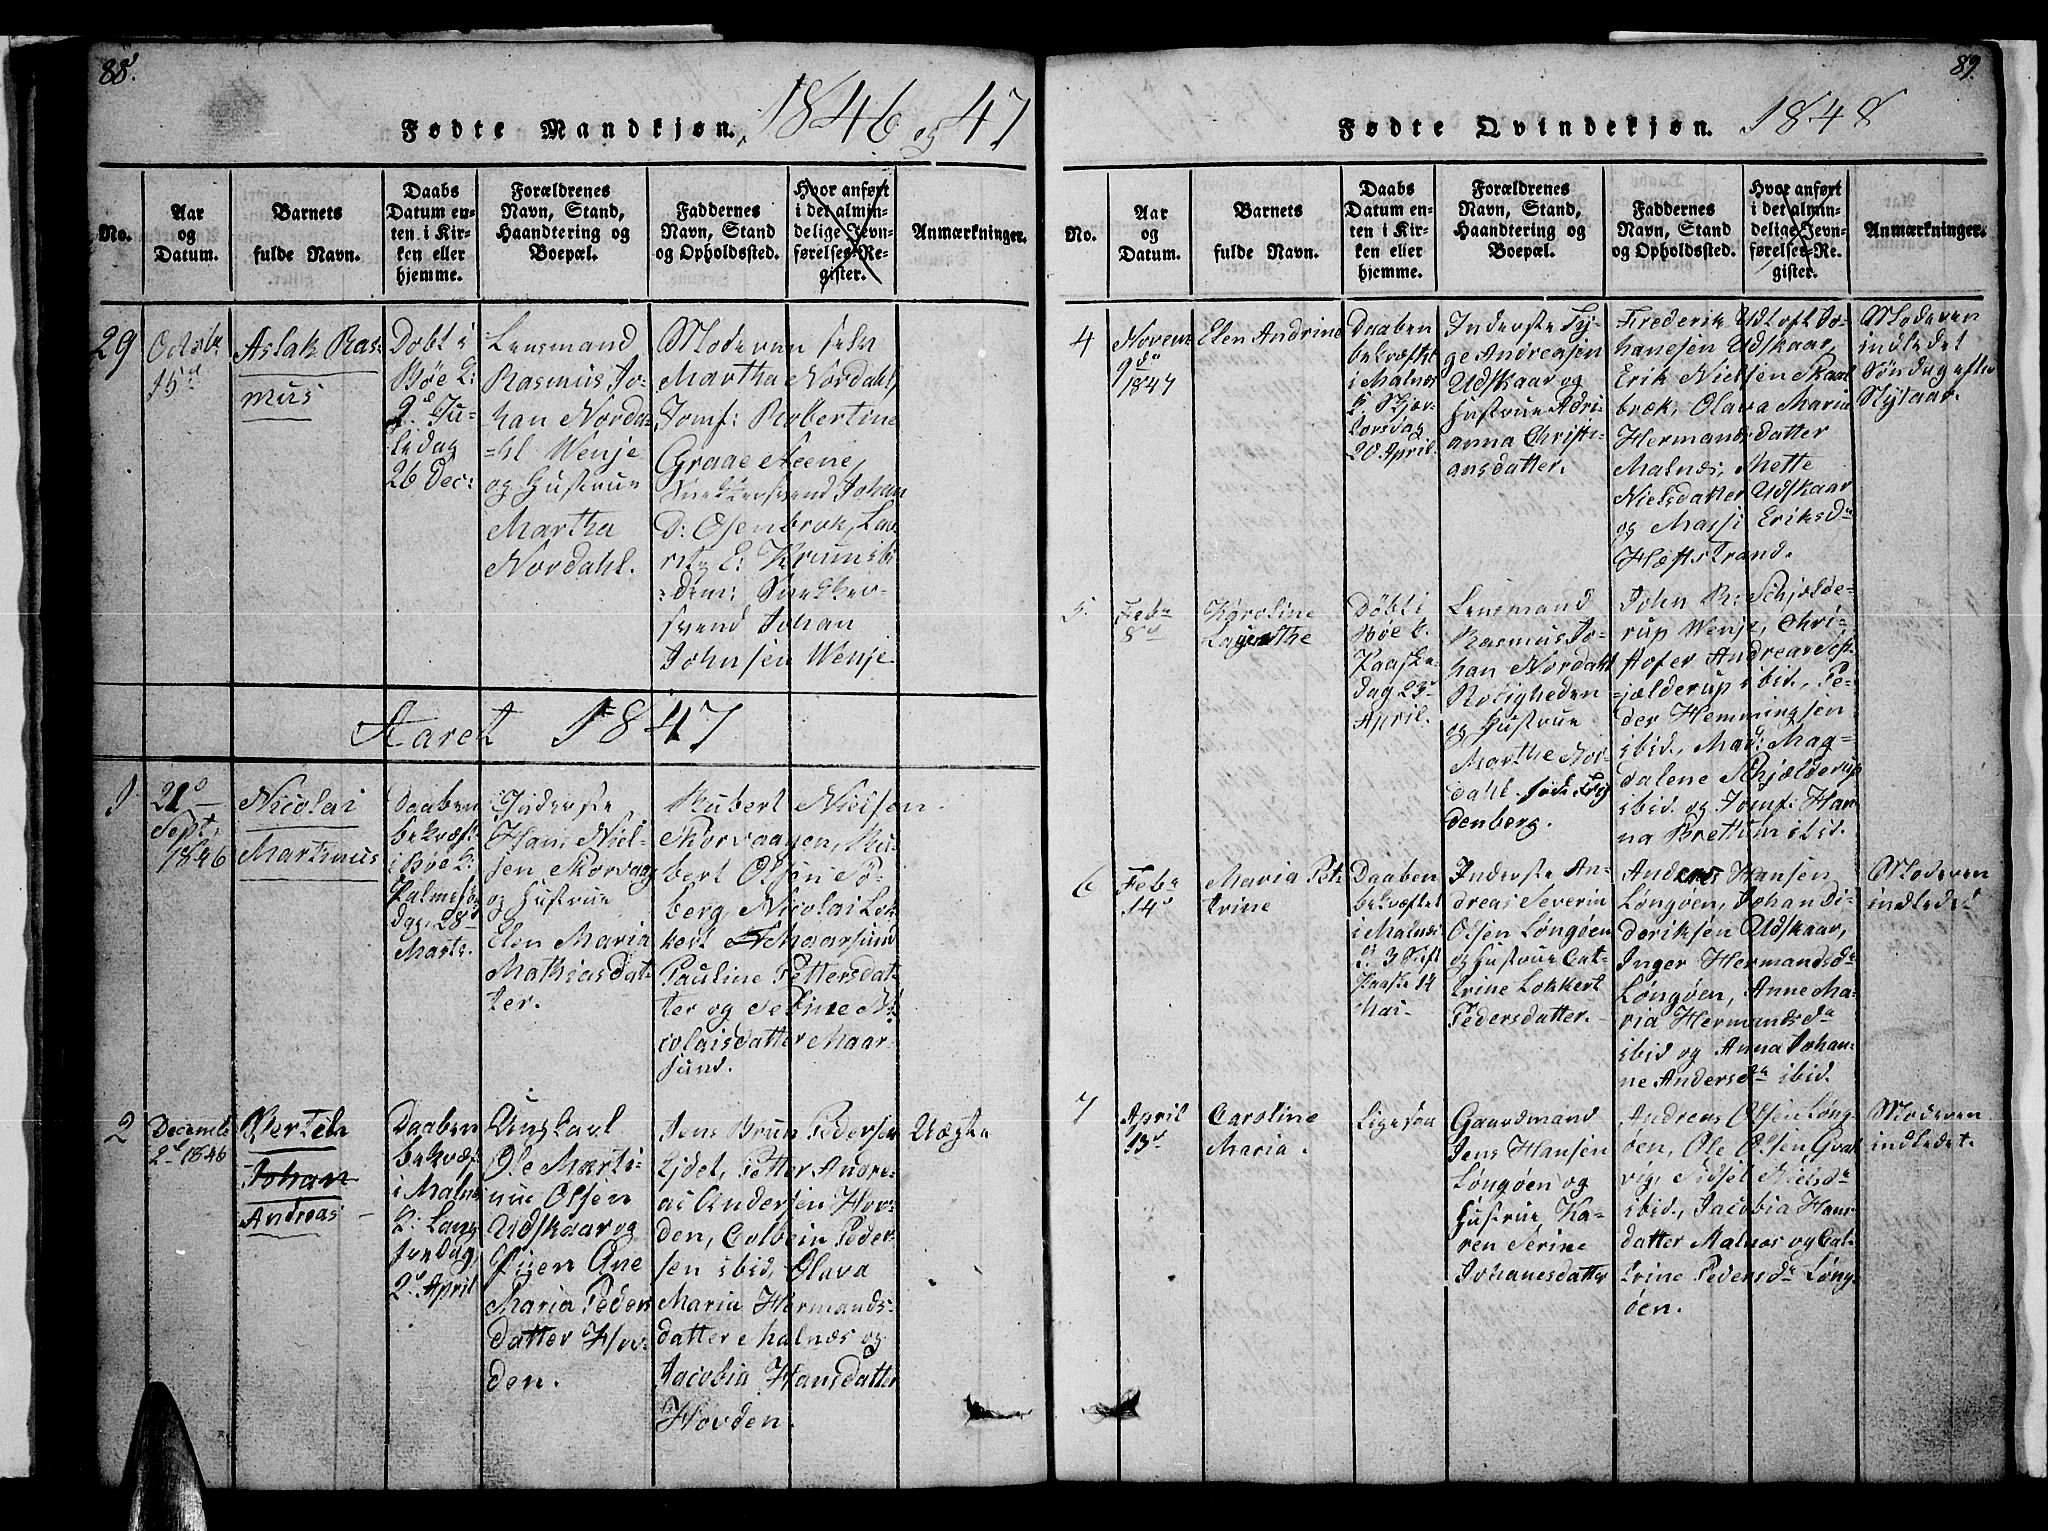 88.
Fødte Mandkjøn. 1846 og 47
No.
Aar
og
Datum.
Barnets
fulde Navn.
Daabs
Datum en-
ten i Kir-
ken eller
hjemme.
Forældrenes
Navn, Stand,
Haandtering og
Boepæl.
Faddernes
Navn, Stand
og Opholdssted.
Hvor anført
i det almin-
delige Jevn-
førelses-Re-
gister.
Anmærkninger.
29
Octobr
15d
Aslak Ras-
mus
Døbt i
Bøe K:
2d Ju-
ledag
26 Dec:
Lensmand
Rasmus Jo-
han Norda-
hl Wenje
og Hustrue
Martha
Nordahl.
Moderen selv
Martha Nordahl,
Jomf: Robertine
Graae Steene,
Snekkersvend Johan
D: Osenbrok, Lau-
ritz E: Krumsbi
dem: Snekker-
svend Johan
Johnsen Wenje
Aaret 1847
1
21d
Sept.
1846
Nicolai
Martinus
Daaben
bekræft
i Bøe K:
Palmesøn
dag 28d
Marts.
Inderste
Hans Niel-
sen Skorvaag
og Hustrue
Elen Maria
Mathiasdat-
ter.
Hubert Nielsen
Skorvaagen, Hu-
bert Olsen Sø-
berg, Nicolai Lok-
kert Maarsund
Pauline Pettersdat-
ter og Seline Ni-
colaisdatter Maar-
sund.
2
Decembr
2d 1846
Bertel
Johan
Andreas
Daaben
bekræft
i Malnes
K: Lang
fredag
2d April
Ungkarl
Ole Marti-
nus Olsen
Udskaar og
Pigen Ane
Maria Peders
datter Hov-
den.
Jens Bruun Pedersen
Eidet, Petter Andre-
as Andersen Hov-
den, Colbein Peder-
sen ibid, Olava
Maria Hermands-
datter Malnæs og
Jacobia Hansdatter
Hovden.
Uægte
89.
Fødte Qvindekjøn. 1848
No.
Aar
og
Datum.
Barnets
fulde Navn.
Daabs
Datum en-
ten i Kir-
ken eller
hjemme.
Forældrenes
Navn, Stand,
Haandtering og
Boepæl.
Faddernes
Navn, Stand
og Opholdssted.
Hvor anført
i det almin-
delige Jevn-
førelses-Re-
gister.
Anmærkninger.
4
Novem
9de
1847
Elen Andrine
Daaben
bekræftet
i Malnæs
K. Skjær-
torsdag
20 April.
Inderste Ty-
ge Andreasen
Udskaar og
Hustrue Adri-
anna Christi-
ansdatter.
Frederik Udtoft Jo-
hanesen Udskaar,
Erik Nielsen Skaar
bræk, Olava Maria
Hermandsdatter
Malnæs, Mette
Nielsdatter Udskaar
og Massi Eriksdr
Hæftstrand.
Moderen
indledet
Søndag efter
Nytaar.
5.
Febr
8d
Karoline
Lagertha
Døbt i
Bøe K.
Paaske-
dag 23d
April.
Lensmand
Rasmus Jo-
han Nordahl
Roligheden
og Hustrue
Marthe Nor-
dahl. født Fry
denberg.
John R: Schjølde-
rup Wenje, Chri-
stofer Andreas Sch-
jælderup ibid, Pe-
der Hemmingsen
ibid, Mad: Mag-
dalene Schjælderup
ibid og Jomf: Han-
na Brettum ibid.
6
Febr
14d
Maria Pet-
trine
Daaben
bekræftet
i Malnæs
K. 3 Søn
Paaske 14
Mai-
Inderste An-
dreas Severin
Olsen Løngøen
og Hustrue Cat-
trine Lokkert
Pedersdatter.
Anders Hansen
Løngøen, Johan Di-
deriksen Udskaar,
Inger Hermandsdr
Løngøen, Anne Ma-
ria Hermandsdr
ibid og Anna Johan-
ne Andersdr ibid.
Moderen
indledet
7
April
13d
Caroline
Maria.
Ligesaa
Gaardmand
Jens Hansen
Løngøen og
Hustrue Ka-
ren Serine
Johanesdatter
Andreas Olsen Løng-
øen, Ole Olsen Qval
vig, Sidsel Nielsdr
ibid, Jacobia Hans-
datter Malnæs og Cat-
trine Pedersdr Løng-
øen.
Moderen
indledet.